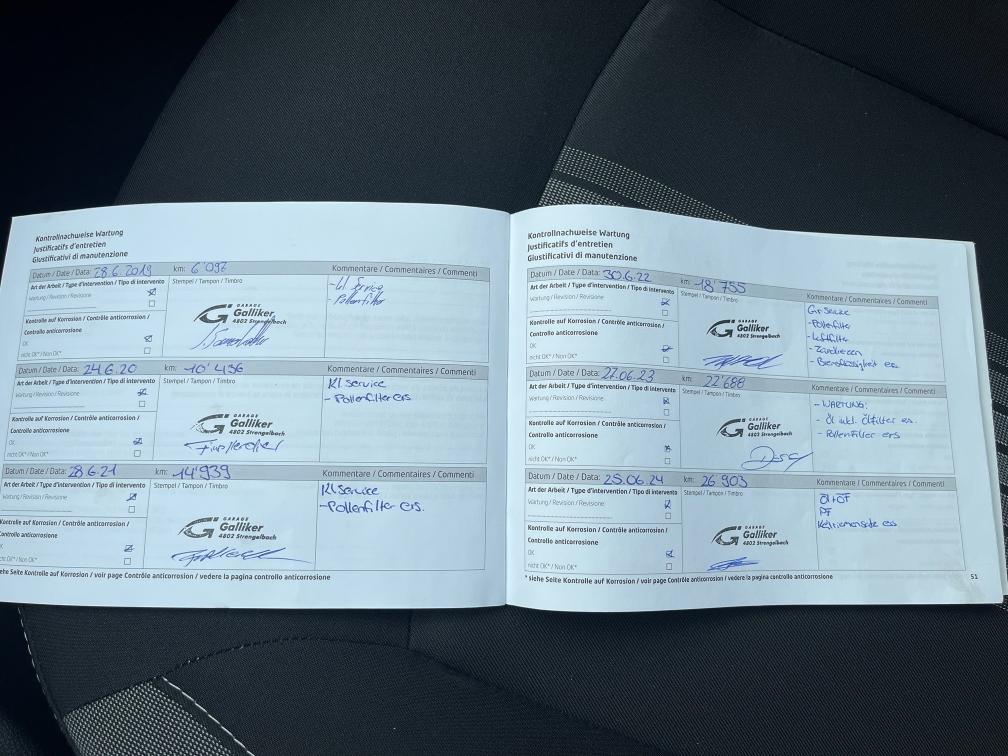 Kontrollnachweise Wartung
Justificatifs d'entretien
Giustificativi di manutenzione
Datum / Date / Data: 28.6.2019 km: 6'097 Kommentare / Commentaires / Commenti
Art der Arbeit / Type d'intervention / Tipo di intervento Stempel / Tampon / Timbro
Wartung / Revision / Revisione
- Kl Service
- Pollenfilter
Kontrolle auf Korrosion / Contrôle anticorrosion /
Controllo anticorrosione
OK
nicht OK* / Non OK*
GARAGE
Galliker
4802 Strengelbach
Datum / Date / Data: 24.6.20 km: 10'456 Kommentare / Commentaires / Commenti
Art der Arbeit / Type d'intervention / Tipo di intervento Stempel / Tampon / Timbro
Wartung / Revision / Revisione
Kl service
- Pollenfilter ers
Kontrolle auf Korrosion / Contrôle anticorrosion /
Controllo anticorrosione
OK
nicht OK* / Non OK*
GARAGE
Galliker
4802 Strengelbach
Datum / Date / Data: 28 6 21 km: 14'939 Kommentare / Commentaires / Commenti
Art der Arbeit / Type d'intervention / Tipo di intervento Stempel / Tampon / Timbro
Wartung / Revision / Revisione
Kl service
- Pollenfilter ers.
Kontrolle auf Korrosion / Contrôle anticorrosion /
Controllo anticorrosione
nicht OK* / Non OK*
GARAGE
Galliker
4802 Strengelbach
siehe Seite Kontrolle auf Korrosion / voir page Contrôle anticorrosion / vedere la pagina controllo anticorrosione
Kontrollnachweise Wartung
Justificatifs d'entretien
Giustificativi di manutenzione
Datum / Date / Data: 30.6.22 km: 18'755 Kommentare / Commentaires / Commenti
Art der Arbeit / Type d'intervention / Tipo di intervento Stempel / Tampon / Timbro
Wartung / Revision / Revisione
Gr Service
- Pollenfilter
- Luftfilter
- Zündkerzen
- Bremsflüssigkeit ers
Kontrolle auf Korrosion / Contrôle anticorrosion /
Controllo anticorrosione
OK
nicht OK* / Non OK*
GARAGE
Galliker
4802 Strengelbach
Datum / Date / Data: 27.06.23 km: 22'688 Kommentare / Commentaires / Commenti
Art der Arbeit / Type d'intervention / Tipo di intervento Stempel / Tampon / Timbro
Wartung / Revision / Revisione
- WARTUNG:
- Öl inkl. Ölfilter es.
- Pollenfilter ers
Kontrolle auf Korrosion / Contrôle anticorrosion /
Controllo anticorrosione
OK
nicht OK* / Non OK*
GARAGE
Galliker
4802 Strengelbach
Datum / Date / Data: 25.06.24 km: 26 903 Kommentare / Commentaires / Commenti
Art der Arbeit / Type d'intervention / Tipo di intervento Stempel / Tampon / Timbro
Wartung / Revision / Revisione
Öl+ÖF
PF
Kontrolle auf Korrosion / Contrôle anticorrosion /
Controllo anticorrosione
OK
nicht OK* / Non OK*
GARAGE
Galliker
4802 Strengelbach
* siehe Seite Kontrolle auf Korrosion / voir page Contrôle anticorrosion / vedere la pagina controllo anticorrosione
51